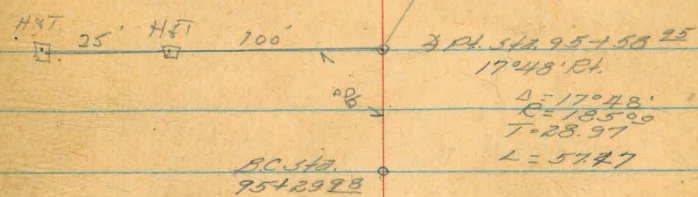 H&T 25' H&T 100'
∡ Pt. Sta. 95+58 25
17°48' Rt.
90°
Δ = 17°48'
R = 185.00
T = 28.97
L = 57.47
B.C. Sta.
95+29 98